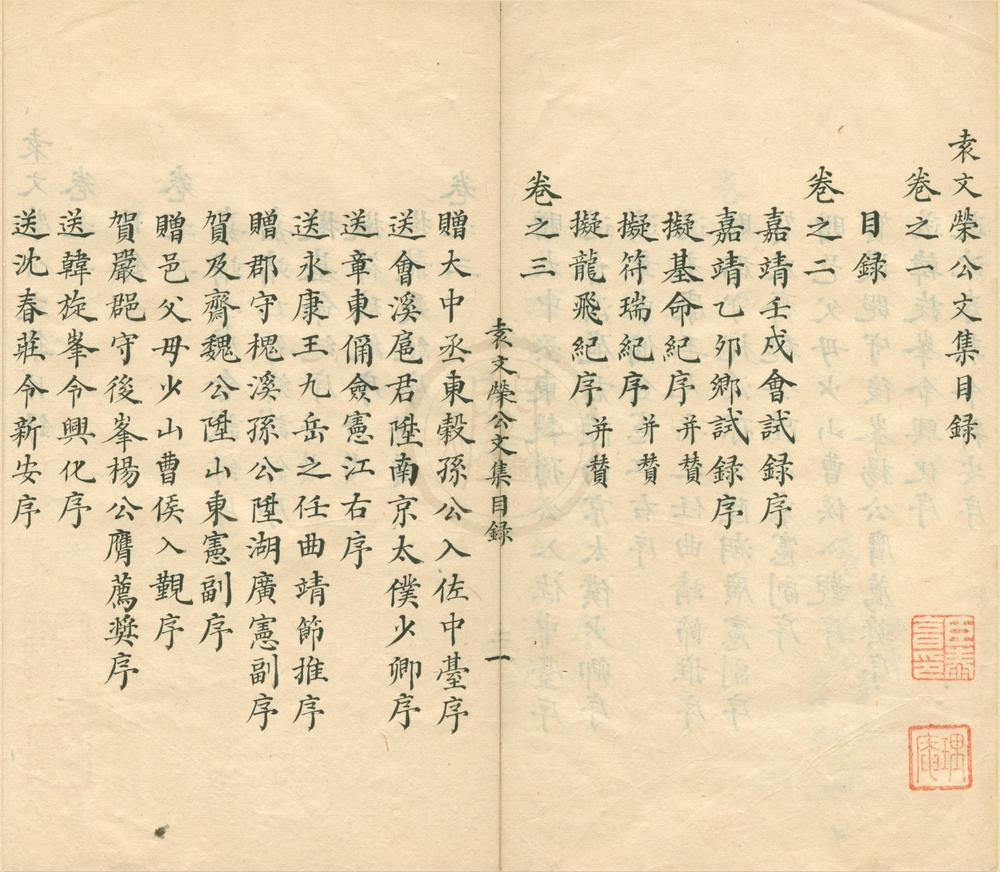 袁文榮公文集目録
卷之一
目録
卷之二
嘉靖壬戌會試録序
嘉靖乙卯鄉試録序
擬基命紀序并贊
擬符瑞紀序并贊
擬龍飛紀序并贊
卷之三
袁文榮公文集目録
一
贈大中丞東穀孫公入佐中臺序
送會溪扈君陞南京太僕少卿序
送章東俑僉憲江右序
送永康王九岳之任曲靖節推序
贈郡守槐溪孫公陞湖廣憲副序
賀及齋魏公陞山東憲副序
贈邑父母少山曹侯入覲序
賀嚴郡守後峯楊公膺薦奬序
送韓旋峯令興化序
送沈春莊令新安序